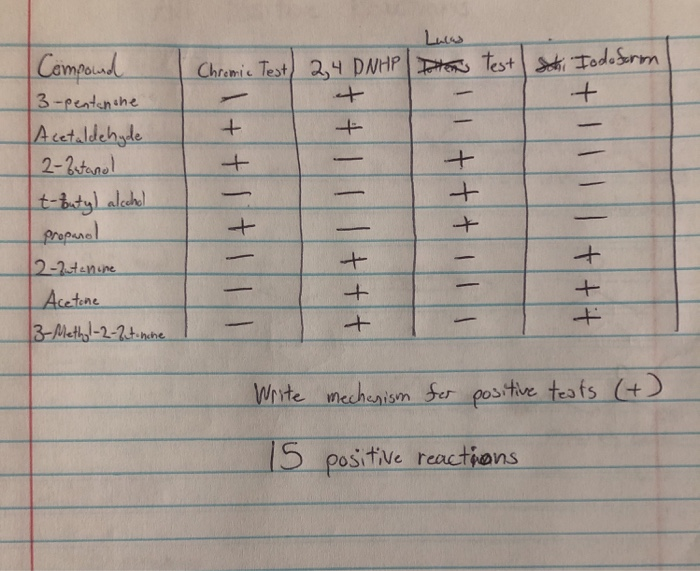 Lucas
Compound Chromic Test 2,4 DNHP Test Iodoform
3-pentanone − + − +
Acetaldehyde + + − −
2-Butanol + − + −
t-Butyl alcohol − − + −
propanol + − + −
2-Butanone − + − +
Acetone − + − +
3-Methyl-2-Butanone − + − +
Write mechanism for positive tests (+)
15 positive reactions